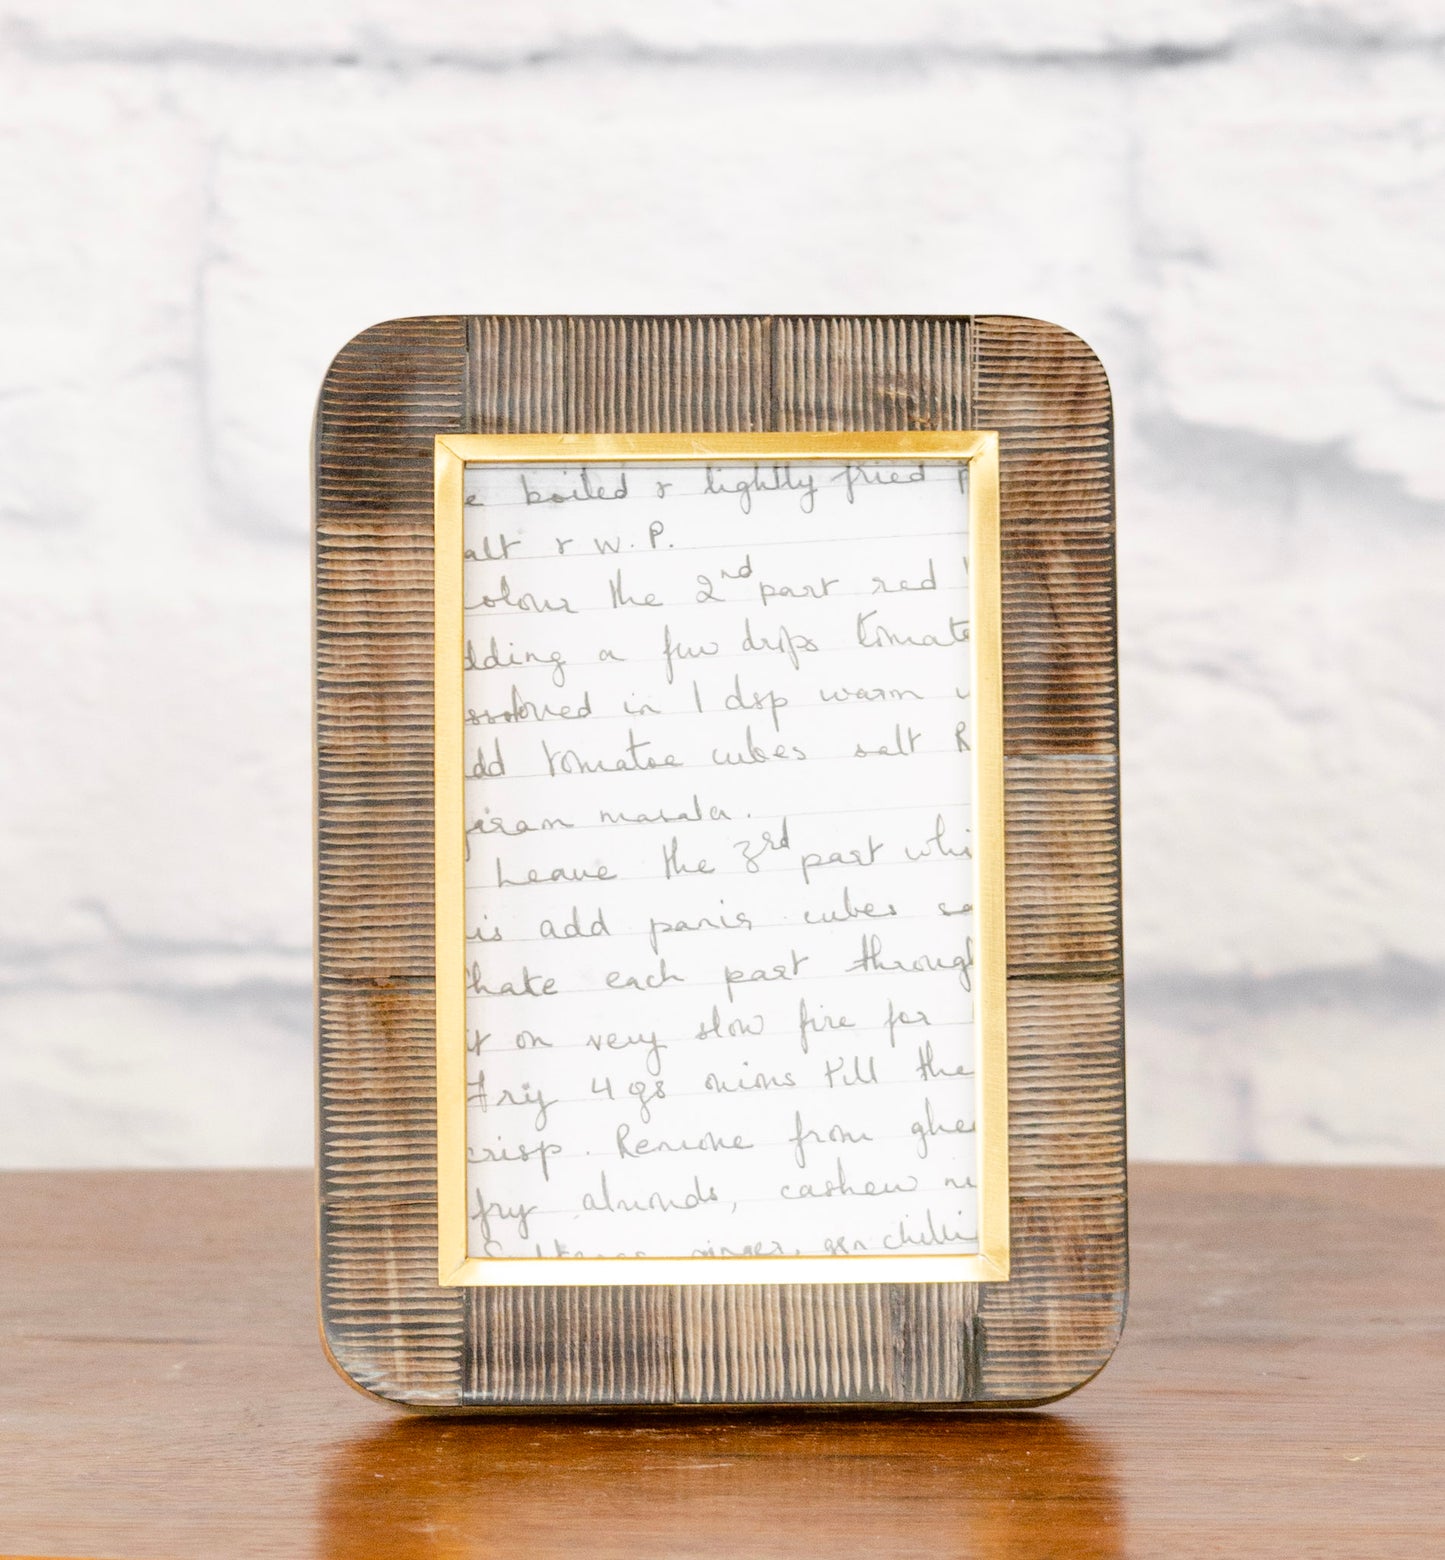 e boiled & lightly fried p
alt & W.P.
olour the 2nd part red
dding a few drps tomato
ssolved in 1 dsp warm w
dd tomatoe cubes salt R
jiram masala.
Leave the 3rd part whi
is add panir cubes sa
hate each part through
it on very slow fire for
Fry 4 gs onions till the
crisp. Remove from ghee
fry almonds, cashew nu
Sultanas ginger, grn chilli